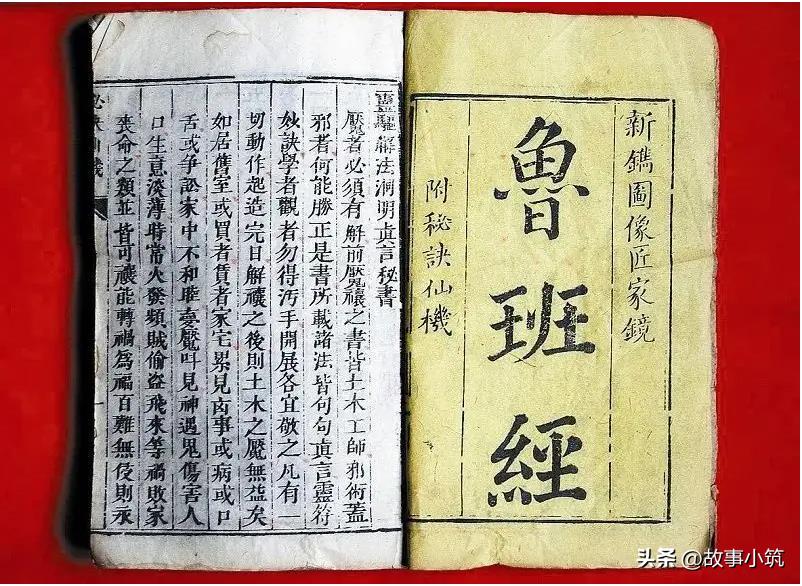 新鐫圖像匠家鏡
魯班經
附秘訣仙機
靈驅解法洞明眞言秘書
魘者必須有解前魘禳之書皆土木工師邪術蓋
邪者何能勝正是書所載諸法皆句句眞言靈符
妙訣學者觀者勿得汚手開展各宜敬之凡有一
切動作起造完日解禳之後則土木之魘無益矣
如居舊室或買者賃者家宅累見凶事或病或口
舌或争訟家中不和睡夢魘叶見神遇鬼傷害人
口生意淡薄時常火發頻賊偷盜飛來等禍敗家
喪命之類並皆可禳能轉禍為福百難無侵則永
秘訣仙機
头条 @故事小筑